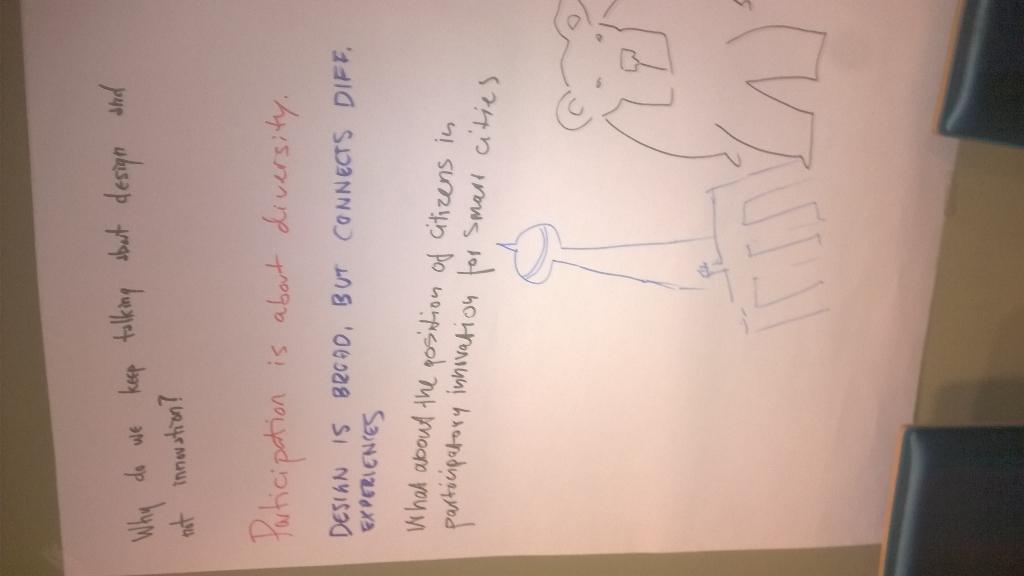 Why do we keep talking about design and
not innovation?
Participation is about diversity.
DESIGN IS BROAD, BUT CONNECTS DIFF.
EXPERIENCES
What about the position of citizens in
participatory innivation for smart cities